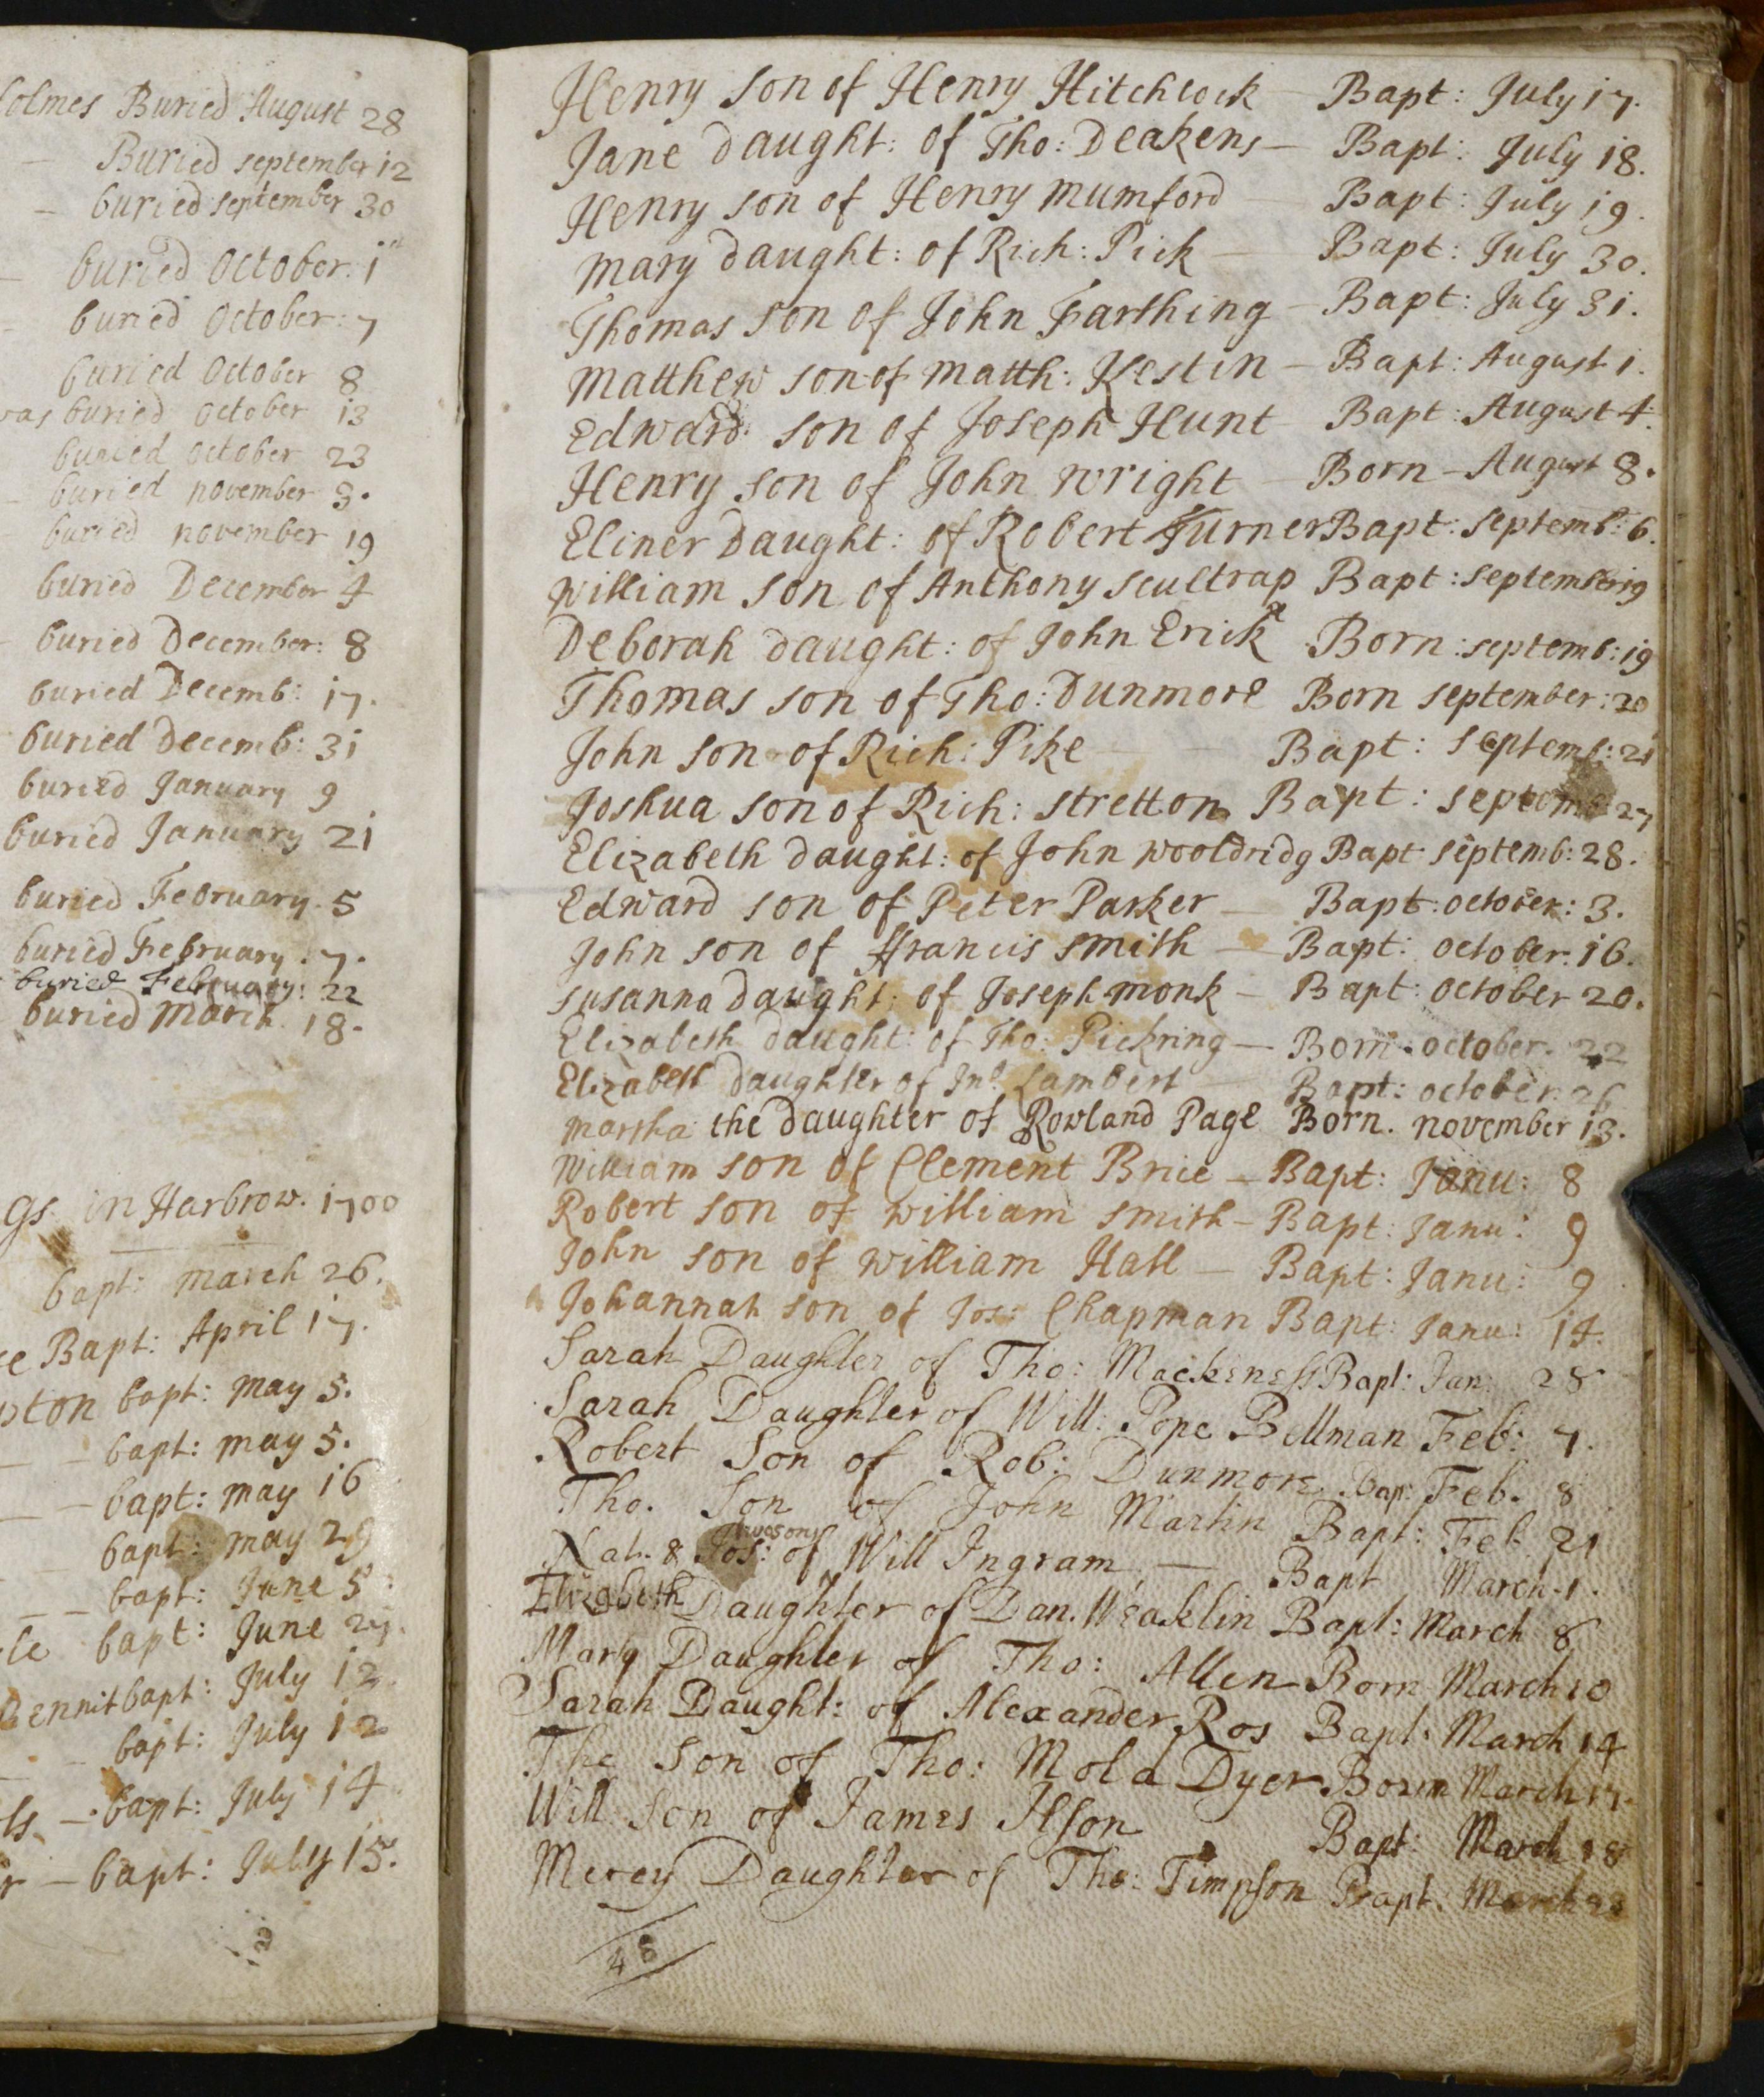 olmes Buried August 28
Buried september 12
buried september 30
buried October: 1
buried October: 7
buried October 8
was buried october 13
buried october 23
buried november 3.
buried november 19
buried December 4
buried December: 8
buried Decemb: 17.
buried Decemb: 31
buried January 9
buried January 21
buried February. 5
buried February. 7.
buried February: 22
buried March. 18.
gs in Harbrow. 1700
bapt: march 26.
Bapt: April 17.
ton bapt: may 5.
bapt: may 5.
bapt: may 16
bapt: may 29
bapt: June 5
bapt: June 27.
Bennit bapt: July 12
bapt: July 12
ls - bapt: July 14
r - bapt: July 15.
Henry son of Henry Hitchcock Bapt: July 17.
Jane Daught: of Tho: Deakens - Bapt: July 18.
Henry son of Henry Mumford Bapt: July 19.
Mary Daught: of Rich: Pick - Bapt: July 30.
Thomas son of John Farthing - Bapt: July 31.
Matthew son of Matth: Kestin - Bapt: August 1.
Edward son of Joseph Hunt Bapt: August 4.
Henry son of John Wright Born - August 8.
Eliner Daught: of Robert Turner Bapt: Septemb: 6.
William son of Anthony Scultrap Bapt: September 19
Deborah Daught: of John Erick Born: septemb: 19
Thomas son of Tho: Dunmore Born September: 20
John son of Rich: Pike Bapt: Septemb: 21
Joshua son of Rich: Stretton Bapt: Septemb 27
Elizabeth Daught: of John Wooldridg Bapt septemb: 28.
Edward son of Peter Parker - Bapt: october: 3.
John son of Francis Smith - Bapt: october: 16.
Susanna Daught: of Joseph Monk - Bapt: October 20.
Elizabeth Daught: of Tho: Pickring - Born. october. 22
Elizabeth Daughter of Jno. Lambert Bapt: october: 26
Martha the Daughter of Rowland Page Born. november 13.
William son of Clement Brice - Bapt: Janu: 8
Robert son of William Smith - Bapt: Janu: 9
John son of William Hall - Bapt: Janu: 9
Johannah son of Jos: Chapman Bapt: Janu: 14.
Sarah Daughter of Tho: Mackeness Bapt: Jan: 28
Sarah Daughter of Will: Pope Bellman Feb: 7.
Robert Son of Rob: Dunmore Bap: Feb. 8
Tho. Son of John Martin Bapt: Feb 21
two sons
Nat. & Jos: of Will Ingram - Bapt March. 1.
Elizabeth Daughter of Dan. Weaklin Bapt: March 8
Mary Daughter of Tho: Allen Born March 10
Sarah Daught: of Alexander Ros Bapt: March 14
The Son of Tho: Mold a Dyer Born March 17.
Will Son of James Ilson Bapt: March 18
Mercy Daughter of Tho: Timpson Bapt: March 23